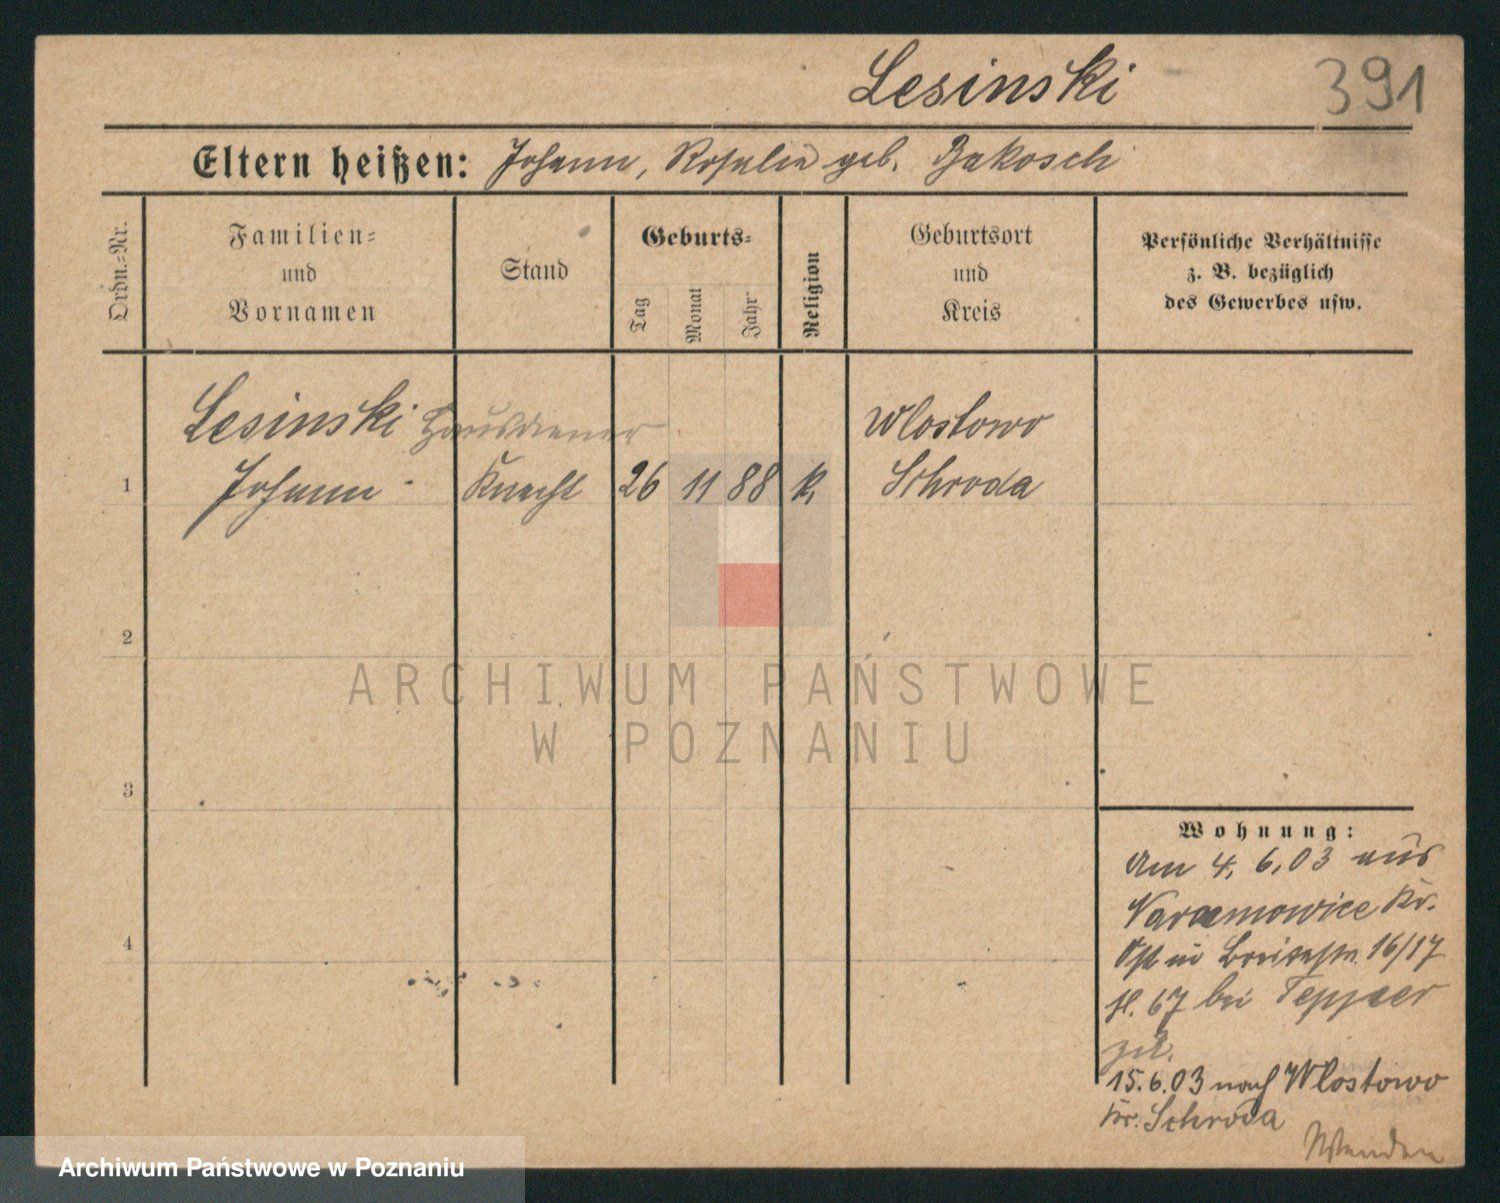 Lesinski 391
Eltern heißen: Johann, Rosalie geb. Bakosch
Ordn.-Nr.
Familien-
und
Vornamen
Stand
Geburts-
Tag
Monat
Jahr
Religion
Geburtsort
und
Kreis
Persönliche Verhältnisse
z. B. bezüglich
des Gewerbes usw.
Lesinski Hausdiener Wlostowo
1 Johann Knecht 26 11 88 k. Schroda
2
ARCHIWUM PAŃSTWOWE
W POZNANIU
3
Wohnung:
Am 4. 6. 03 aus
Naramowice Kr.
4
Ost in Breitestr. 16/17
bei
zu.
15.6.03 nach Wlostowo
Kr. Schroda
Wenden
Archiwum Państwowe w Poznaniu